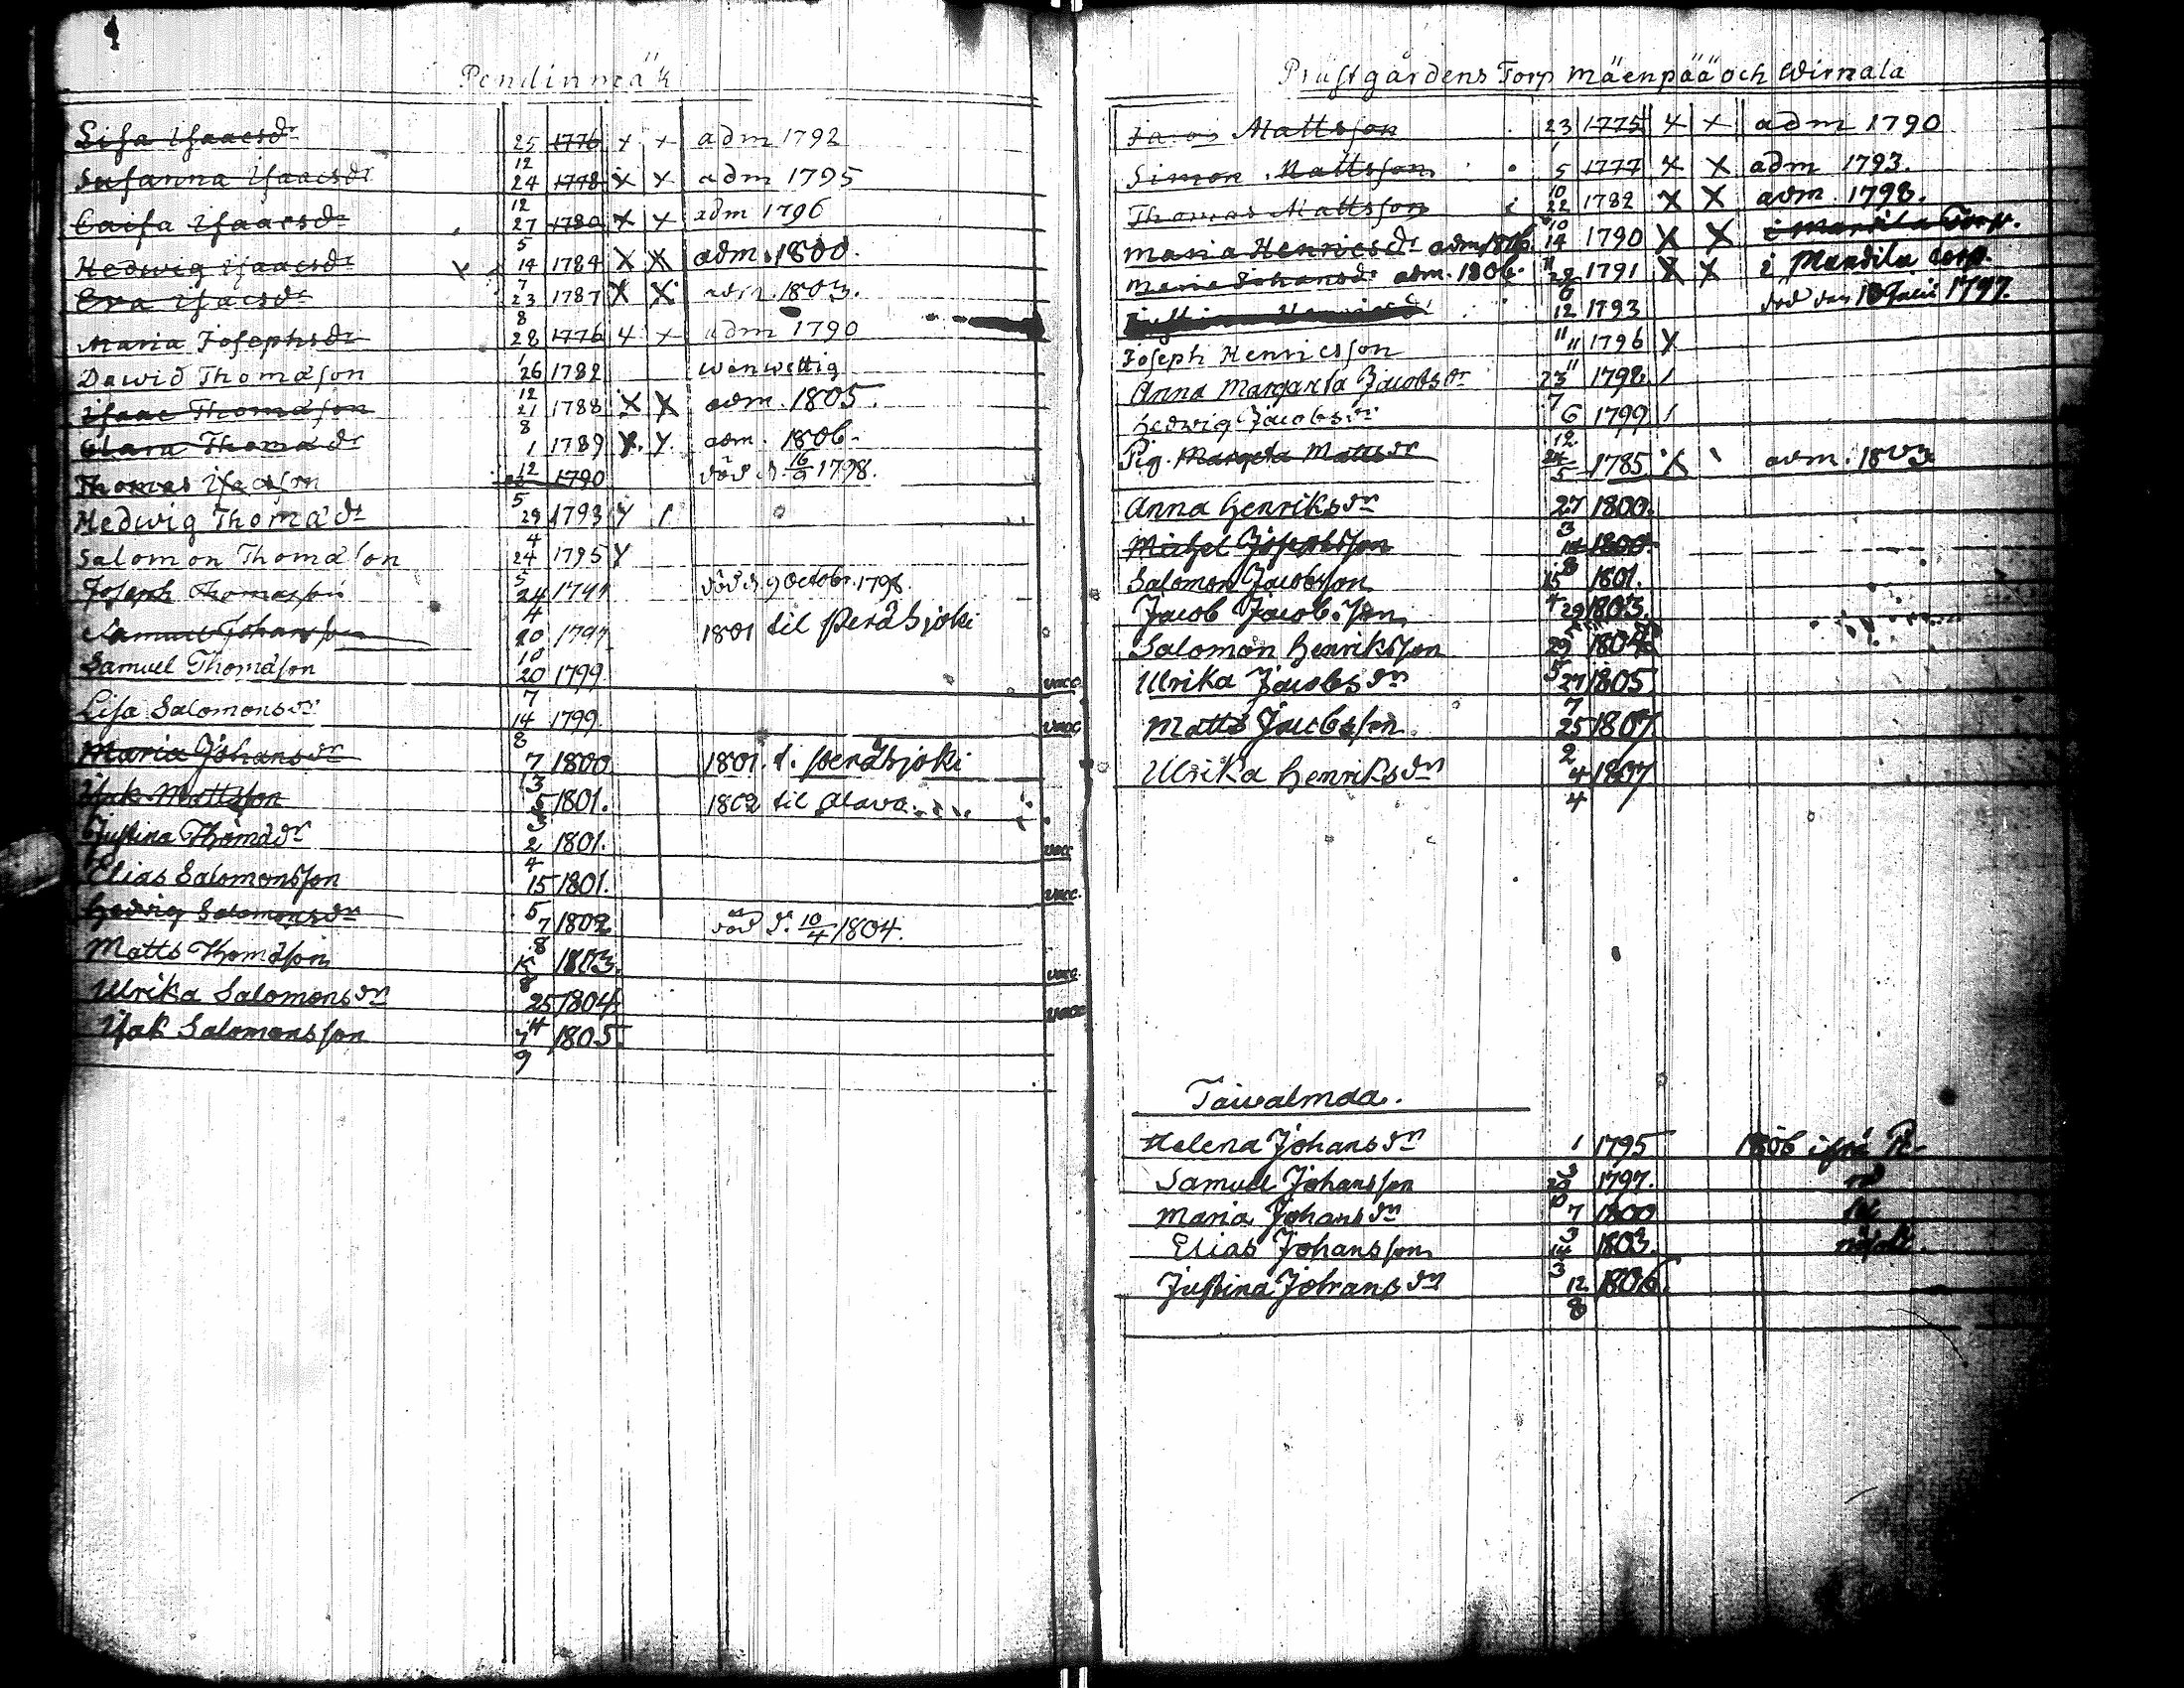 Pendinmäk
Lisa Isaacsdr 25/12 1776 x x adm 1792
Susanna Isaacsdr 24/12 1778 x x adm 1795
Caisa Isaacsdr 27/5 1780 x x adm 1796
Hedwig Isaacsdr 14/7 1784 x x adm. 1800.
Eva Isacsdr 23/8 1787 x x adm. 1803.
Maria Josephsdr 28/1 1776 x x adm 1790
Dawid Thomason 26/12 1782 wanwettig
Isaac Thomason 21/8 1788 x x adm. 1805.
Clara Thomadr 1/12 1789 x x adm. 1806.
Thomas Isacsson 1790 död d. 16/9 1798.
Hedwig Thomadr 29/4 1793 x /
Salomon Thomason 24/5 1795 x
Joseph Thomasson 24/4 död d. 9 Octobr. 1798
Samuel Johansson 20/10 1797 1801 til Peräsjoki
Samuel Thomason 20/7 1799. vacc.
Lisa Salomonsdr 14/8 1799. vacc
Maria Johansdr 7/3 1800 1801. t. Peräsjoki
Isak Mattsson 5/3 1801. 1802 til Alavo
Justina Thomadr 2/4 1801. vacc
Elias Salomonsson 15/5 1801. vacc.
Hedvig Salomonsdr 7/8 1802 död d. 10/4 1804.
Matts Thomason 15/8 1803. vacc.
Ulrika Salomonsdr 25/4 1804 vacc
Isak Salomonsson 7/9 1805.
Prästgårdens Torp Mäenpää och Wirnala
Jacob Mattsson 23/1 1775 x x adm 1790
Simon Mattsson 5/10 1777 x x adm 1793.
Thomas Mattsson 22/10 1782 x x adm. 1798.
Maria Henricsdr adm 1806. 14/11 1790 x x i Mandila Torp.
Maria Johansdr adm. 1806. 29/6 1791 x x i Mandila torp.
Henricsdr 12 1793 död den 10 Julii 1797.
Joseph Henricsson 11/11 1796 x
Anna Margareta Jacobsdr 23/7 1798 /
Hedwig Jacobsdr 6/12 1799 /
Pig. Margeta Mattsdr 24/5 1785 x adm. 1803
Anna Henriksdr 27/3 1800.
Michel Josephsson 14/8 1800
Salomon Jacobsson 15/4 1801.
Jacob Jacobsson 29 1803.
Salomon Henriksson 29/5 1804
Ulrika Jacobsdr 27/7 1805
Matts Jacobsson 25/2 1807
Ulrika Henriksdr 4/4 1807
Taivalmaa.
Helena Johansdr 1/3 1795 1806 ifrå P-
Samuel Johansson 20/10 1797.
Maria Johansdr 7/3 1800
Elias Johansson 14/3 1803.
Justina Johransdr 12/8 1806.